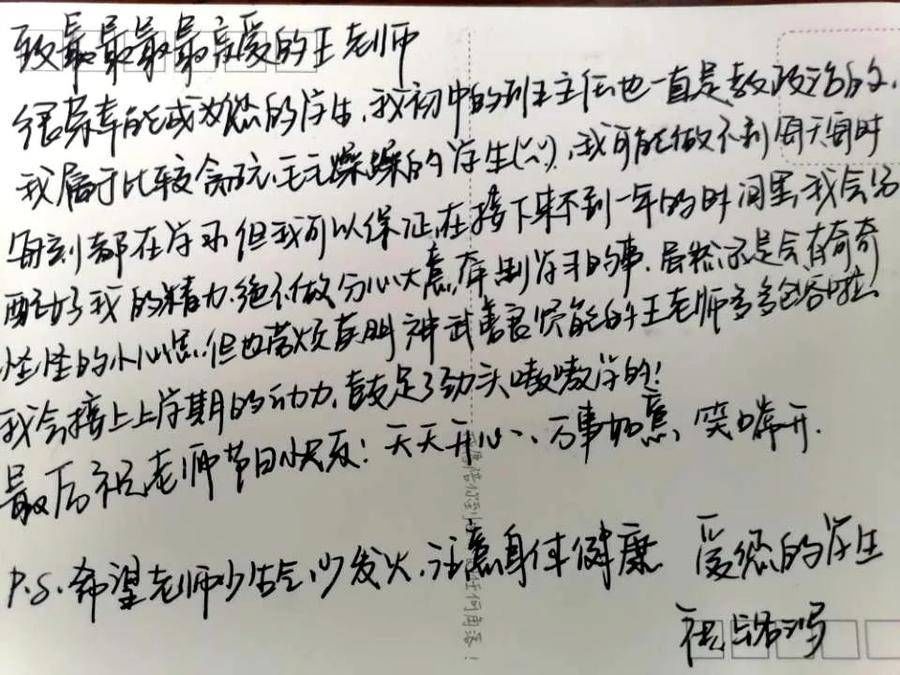 致最最最最亲爱的王老师
很荣幸能成为您的学生,我初中的班主任也一直是教政治的,
我属于比较贪玩、毛毛躁躁的学生(八),我可能做不到每天每时
每刻都在学习 但我可以保证,在接下来不到一年的时间里,我会分
配好我的精力,绝不做分心大意牵制学习的事,虽然还是会有奇奇
怪怪的小心思,但也常烦英明神武善良贤能的王老师多多包容啦
我会接上上学期的动力,鼓足了劲头嗷嗷学的!
最后祝老师节日快乐:天天开心、万事如意,笑口常开.
P.S.希望老师少生气,少发火,注意身体健康 爱您的学生